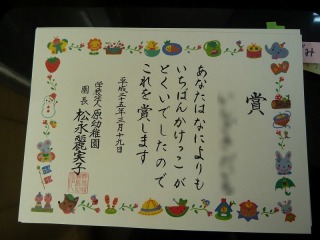 賞
あなたはなによりも
いちばんかけっこが
とくいでしたので
これを賞します
平成二十五年三月十九日
学校法人原幼稚園
園長 松永麗実子